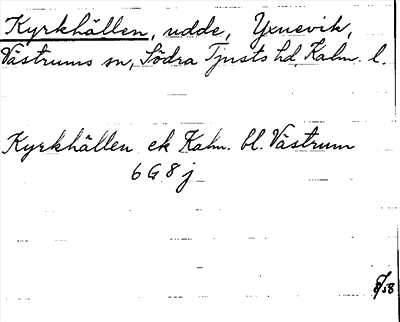 Kyrkhällen, udde, Yxnevik,
Västrums sn, Södra Tjusts hd, Kalm. l.
Kyrkhällen ek Kalm. bl. Västrum
6 G 8 j